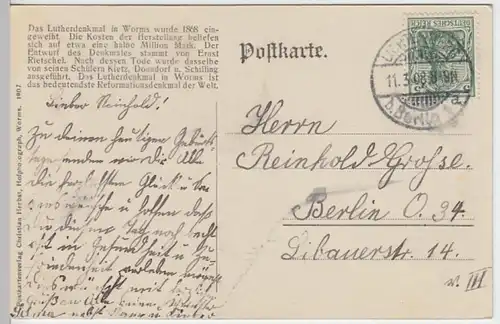 Das Lutherdenkmal in Worms wurde 1868 ein-
geweiht. Die Kosten der Herstellung beliefen
sich auf etwa eine halbe Million Mark. Der
Entwurf des Denkmales stammt von Ernst
Rietschel. Nach dessen Tode wurde dasselbe
von seinen Schülern Kietz, Donndorf u. Schilling
ausgeführt. Das Lutherdenkmal in Worms ist
das bedeutendste Reformationsdenkmal der Welt.
Postkartenverlag Christian Herbst, Hofphotograph, Worms. 1907
Postkarte.
DEUTSCHES REICH
11.3.08. 8-9N
b. Berlin
Lieber Reinhold!
Zu deinem heutigen Geburts-
tage senden wir dir Alle
die herzlichsten Glück u Se
genswünsche u hoffen daß
du diesen Tag noch recht
oft in Gesundheit u Zu
friedenheit verleben mögest
Herrn
Reinhold Grosse.
Berlin O. 34.
Libauerstr. 14.
v. III